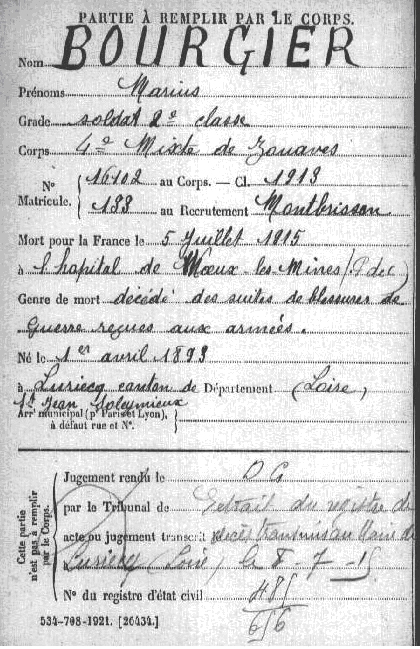 PARTIE À REMPLIR PAR LE CORPS.
Nom BOURGIER
Prénoms Marius
Grade soldat 2e classe
Corps 4e Mixte de Zouaves
N° Matricule. { 16102 au Corps. — Cl. 1913
133 au Recrutement Montbrison
Mort pour la France le 5 Juillet 1915
à l'hopital de Nœux-les-Mines (P de C)
Genre de mort décédé des suites de blessures de
Guerre reçues aux armées.
Né le 1er avril 1893
à Luriecq canton de Département (Loire)
St Jean Soleymieux
Arrt municipal (pr Paris et Lyon), à défaut rue et N°. }
Cette partie n'est pas à remplir par le Corps.
Jugement rendu le D C
par le Tribunal de Extrait du registre de
acte ou jugement transcrit le décès transmis au Maire de
à Luriecq (Loire) le 8-7-15
N° du registre d'état civil 485
656
534-708-1921. [26434.]